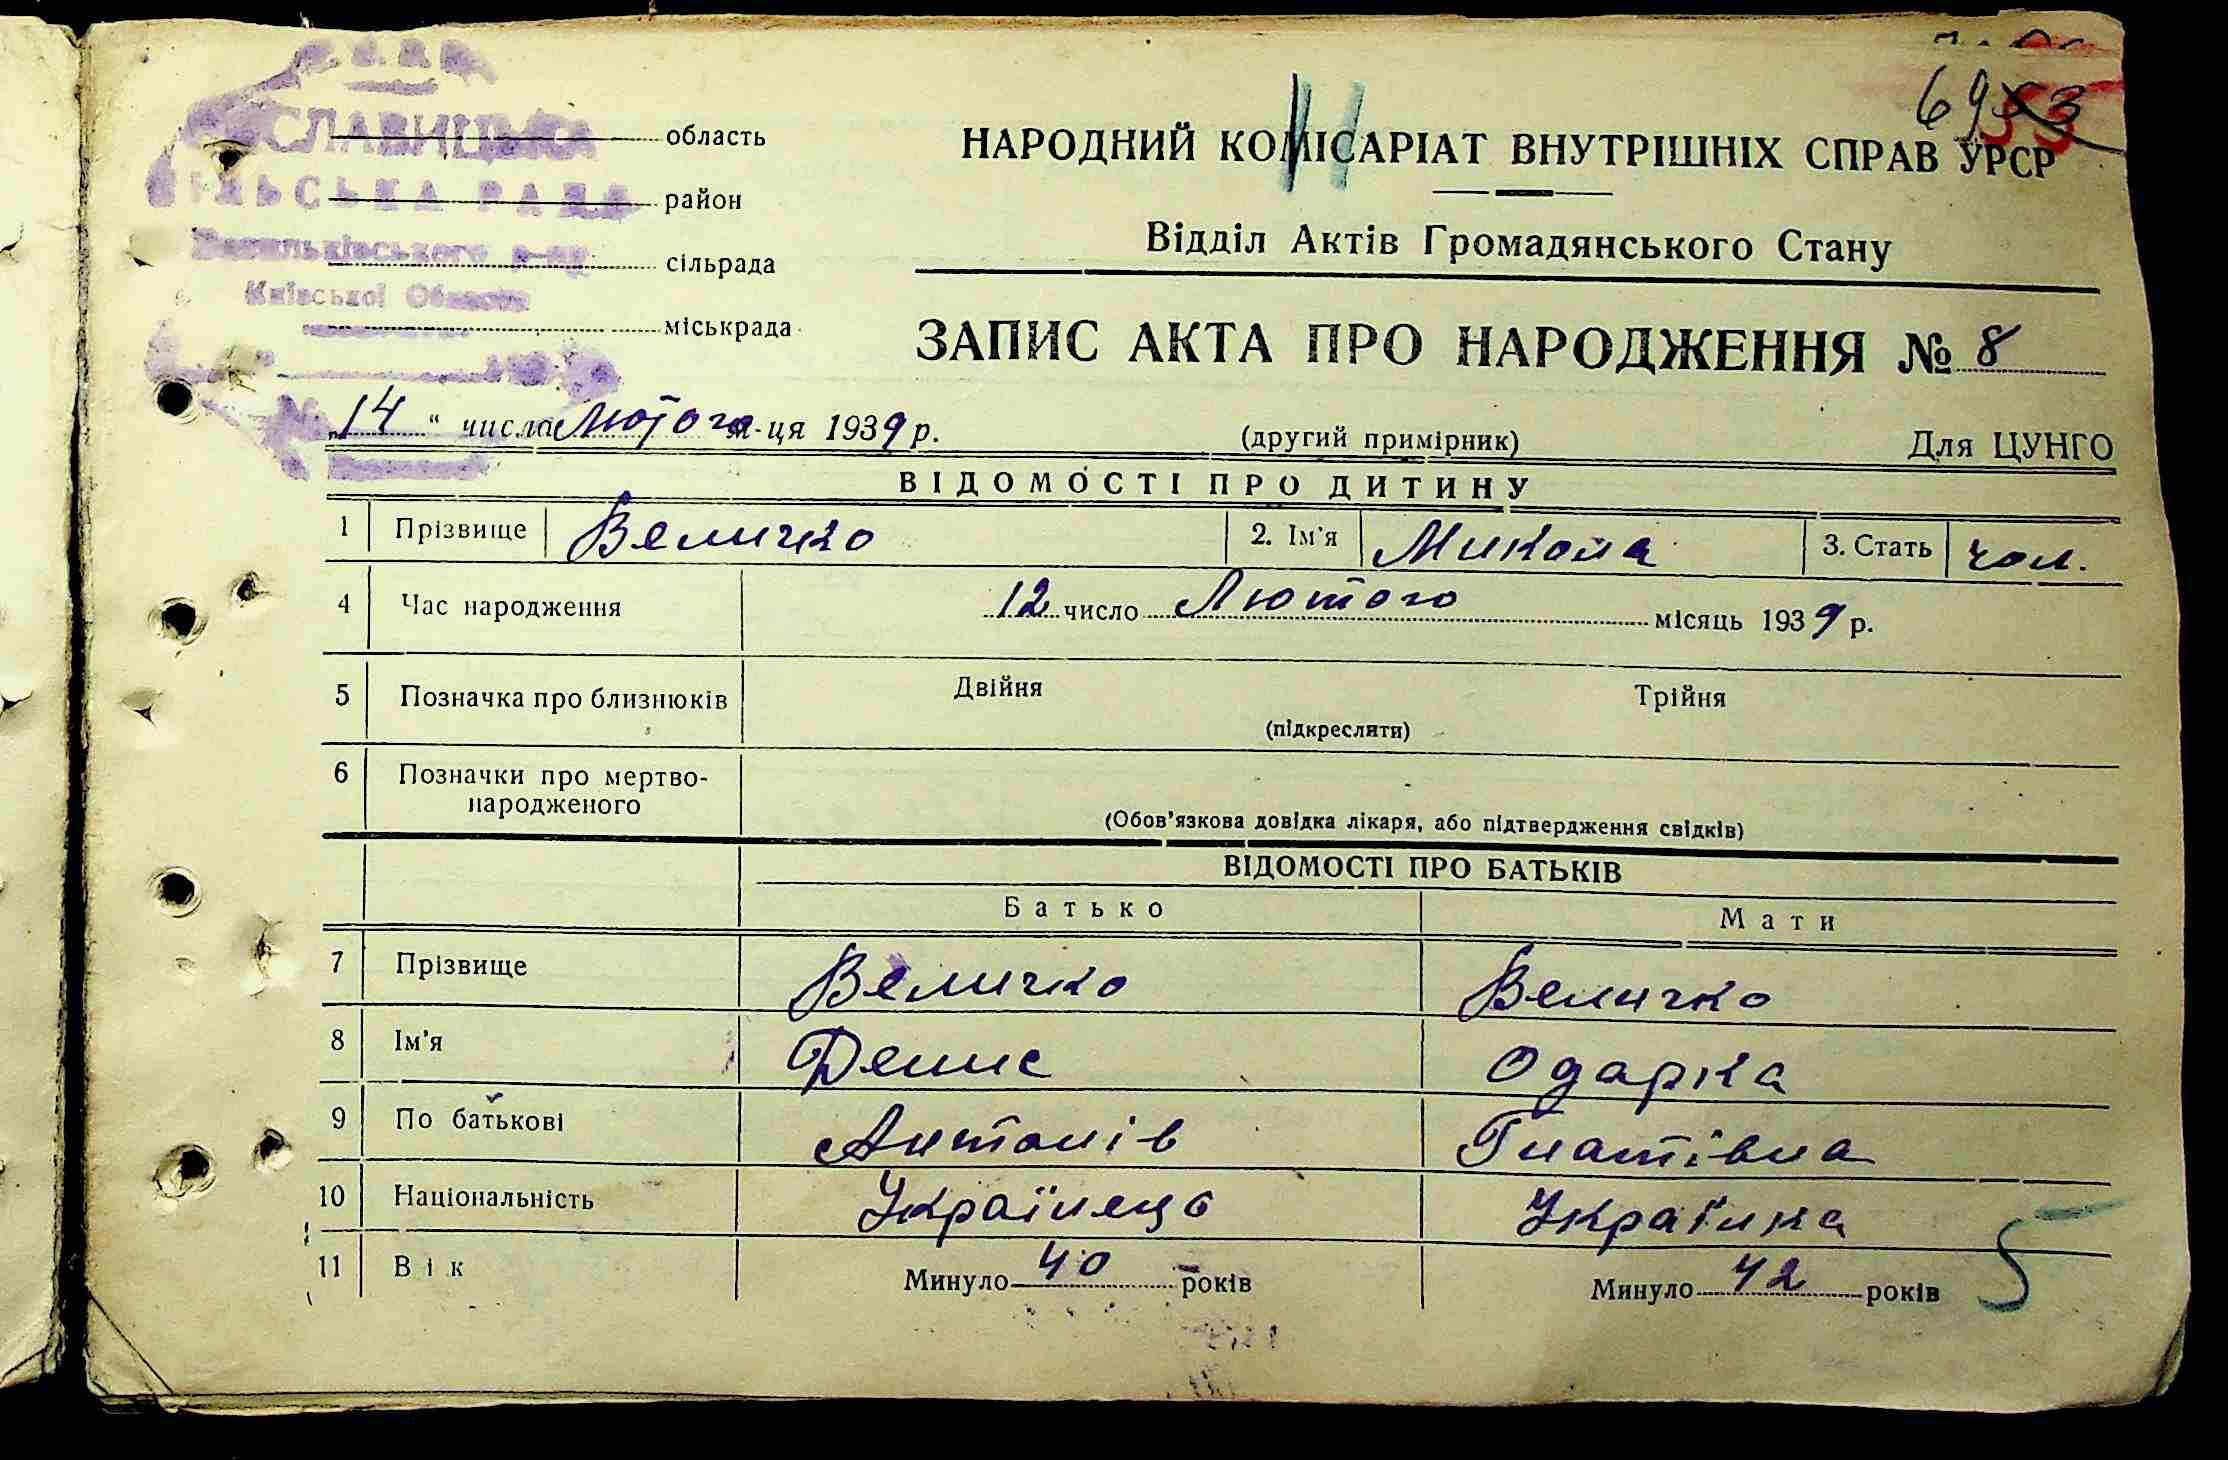 У.С.Р.Р.
СЛАВИЦЬКА
СІЛЬСЬКА РАДА
Васильківського р-ну
Київської Области
область
район
сільрада
міськрада
69 53
НАРОДНИЙ КОМІСАРІАТ ВНУТРІШНІХ СПРАВ УРСР
Відділ Актів Громадянського Стану
ЗАПИС АКТА ПРО НАРОДЖЕННЯ № 8
№
„14“ числа Лютого м-ця 1939 р.
(другий примірник)
Для ЦУНГО
ВІДОМОСТІ ПРО ДИТИНУ
1 Прізвище Величко 2. Ім'я Микола 3. Стать чол.
4 Час народження 12 число Лютого місяць 1939 р.
5 Позначка про близнюків Двійня Трійня
(підкреслити)
6 Позначки про мертво-
народженого
(Обов'язкова довідка лікаря, або підтвердження свідків)
ВІДОМОСТІ ПРО БАТЬКІВ
Батько Мати
7 Прізвище Величко Величко
8 Ім'я Денис Одарка
9 По батькові Антонів Гнатівна
10 Національність Українець Українка
11 Вік Минуло 40 років Минуло 42 років
5